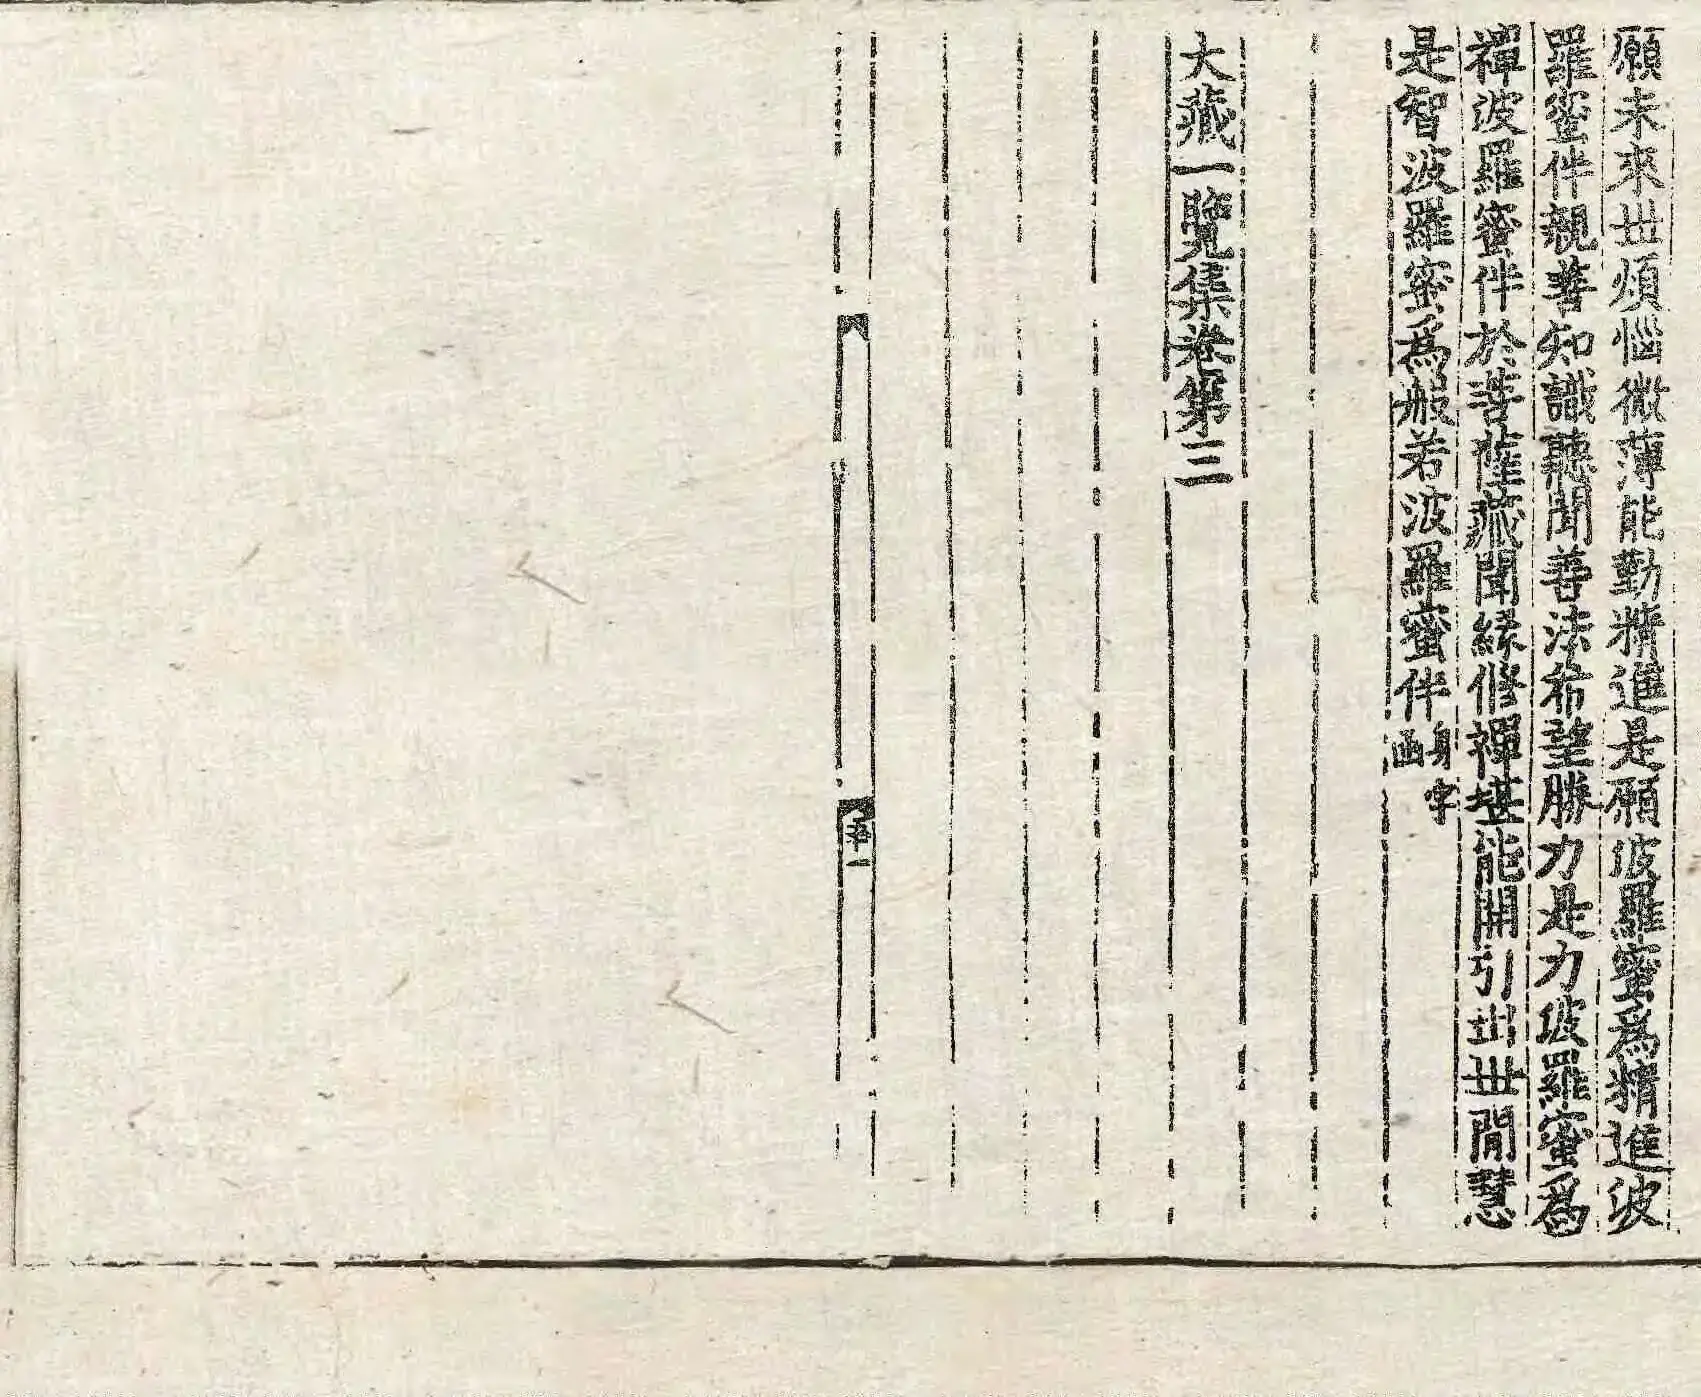 願未來丗煩惱微薄能勤精進是願波羅蜜爲精進波
羅蜜伴親善知識聽聞善法希望勝力是力波羅蜜爲
禪波羅蜜伴於菩薩藏聞緣修禪堪能開引出丗閒慧
是智波羅蜜爲般若波羅蜜伴身字函
大藏一覽集卷第三